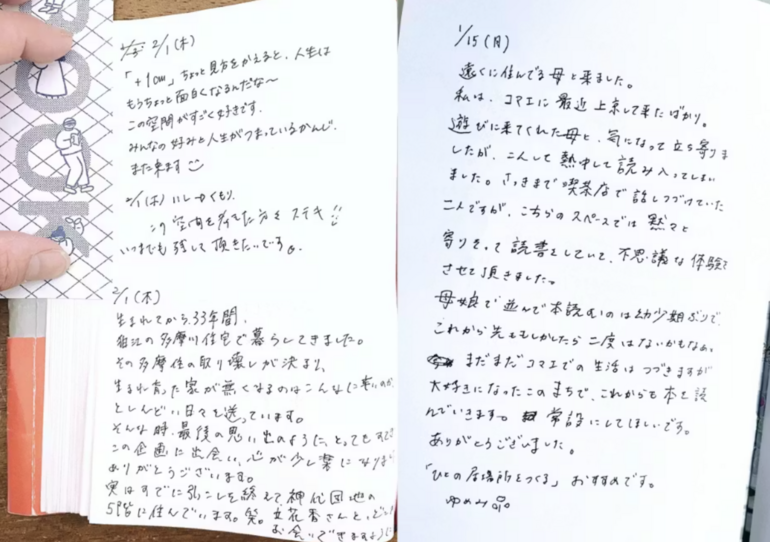 BOOK
2/1(木)
「+1cm」ちょっと見方をかえると、人生は
もうちょっと面白くなるんだな〜
この空間がすごく好きです。
みんなの好みと人生がつまっているかんじ。
また来ます
2/1(木)
この空間を
ステキ!!
いつまでも残して頂きたいです。
2/1(木)
生まれてから33年間、
狛江の多摩川住宅で暮らしてきました。
その多摩住の取り壊しが決まり、
生まれ育った家が無くなるのはこんなに辛いのか、
としんどい日々を送っています。
そんな時、最後の思い出のように、とってもすてき
この企画に出会い、心が少し楽になりました
ありがとうございます。
実はすでに引こしを終えて、神代団地の
5階に住んでいます。笑。立花香さんと、
お会いできますように
1/15(月)
遠くに住んでる母と来ました。
私は、コマエに最近上京して来たばかり。
遊びに来てくれた母と、気になって立ち寄りま
したが、こんして熱中して読み入ってしまい
ました。さっきまで喫茶店で話しつづけていた
二人ですが、こちらのスペースでは黙々と
寄りそって読書をしていて、不思議な体験を
させて頂きました。
母娘で並んで本読むのは幼少期ぶりで、
これから先ももしかしたら二度はないかもなぁ。
まだまだコマエでの生活はつづきますが
大好きになったこのまちで、これからも本を読
んでいきます。常設にしてほしいです。
ありがとうございました。
「ひとの居場所をつくる」おすすめです。
ゆめみ